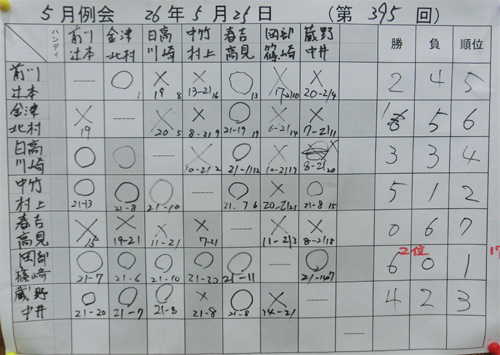 5月例会 26年5月25日 (第395回)
ハンディ 前川 辻本 金津 北村 日高 川崎 中竹 村上 春吉 高見 岡部 篠崎 蔵野 中井 勝 負 順位
前川 辻本 ○ × 19 × 13-21 ○ × 17-21 × 20-21 2 4 5
金津 北村 × 19 × 20 × 8-21 ○ 21-19 × 6-21 × 7-21 1 5 6
日高 川崎 ○ ○ × 10-21 ○ 21-11 × 10-21 8-21 3 3 4
中竹 村上 ○ 21-13 ○ 21-8 ○ 21-10 ○ 21-7 × 20-21 ○ 21-8 5 1 2
春吉 高見 × 15 × 19-21 × 11-21 × 7-21 × 11-21 × 8-21 0 6 7
岡部 篠崎 ○ 21-7 ○ 21-6 ○ 21-10 ○ 21-20 ○ 21-11 ○ 2位 6 0 1
蔵野 中井 ○ 21-20 ○ 21-7 ○ 21-8 × 21-8 ○ 21-8 × 14-21 4 2 3